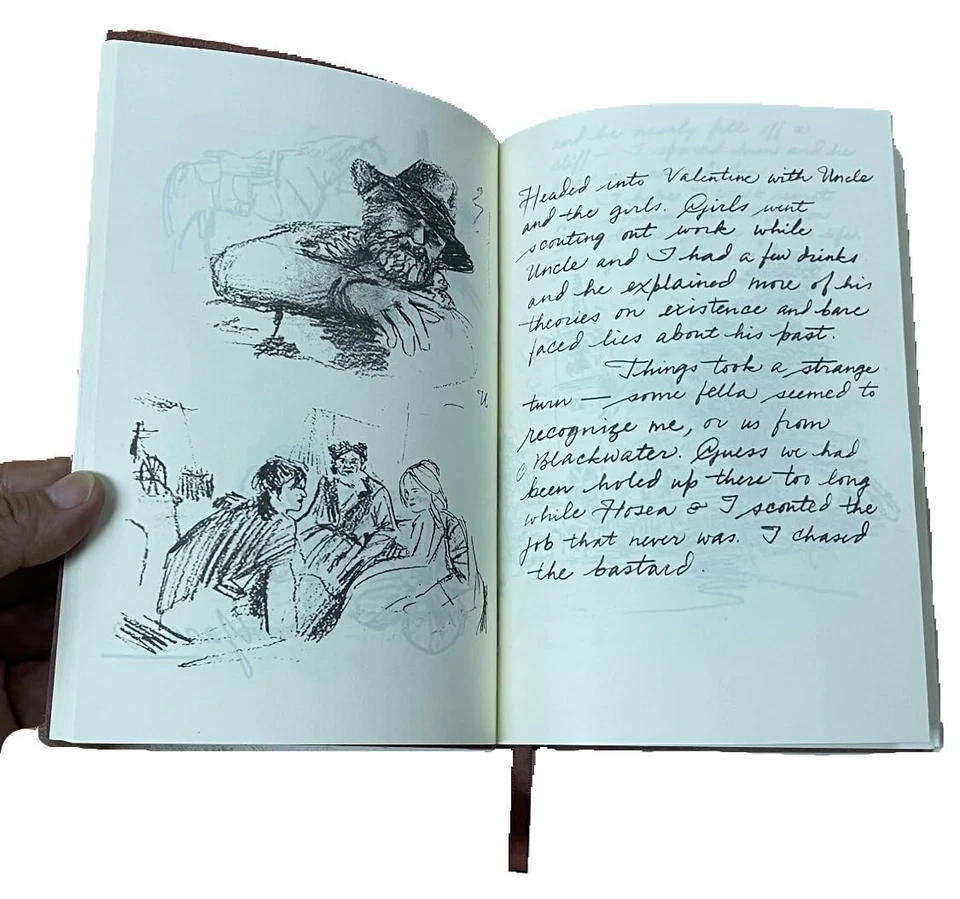 and he nearly fell off a
cliff — I spared him and he
Headed into Valentine with Uncle
and the girls. Girls went
scouting out work while
Uncle and I had a few drinks
and he explained more of his
theories on existence and bare
faced lies about his past.
Things took a strange
turn — some fella seemed to
recognize me, or us from
Blackwater. Guess we had
been holed up there too long
while Hosea & I scouted the
job that never was. I chased
the bastard.